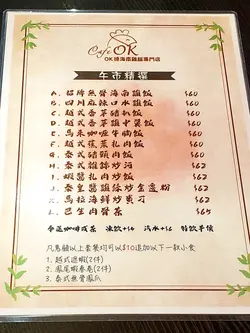 Cafe OK
OK 姨海南雞飯專門店
午市精選
A. 招牌無骨海南雞飯 $60
B. 四川麻辣口水雞飯 $60
C. 越式香茅豬扒飯 $60
D. 越式香茅雞中翼飯 $60
E. 馬來咖喱牛腩飯 $60
F. 越式蕉葉扎肉飯 $60
G. 泰式豬頸肉飯 $60
H. 泰式雞絲炒河 $62
I. 蝦醬扎肉炒飯 $62
J. 泰皇醬雞絲炒金邊粉 $62
K. 馬拉海鮮炒貴刁 $62
L. 巴生肉骨茶 $65
奉送咖啡或茶 凍飲+$4 汽水+$6 特飲半價
凡惠顧以上套餐均可以$10追加以下一款小食
1. 越式迷蝦(2件)
2. 鳳尾蝦春卷(2件)
3. 泰式無骨鳳爪